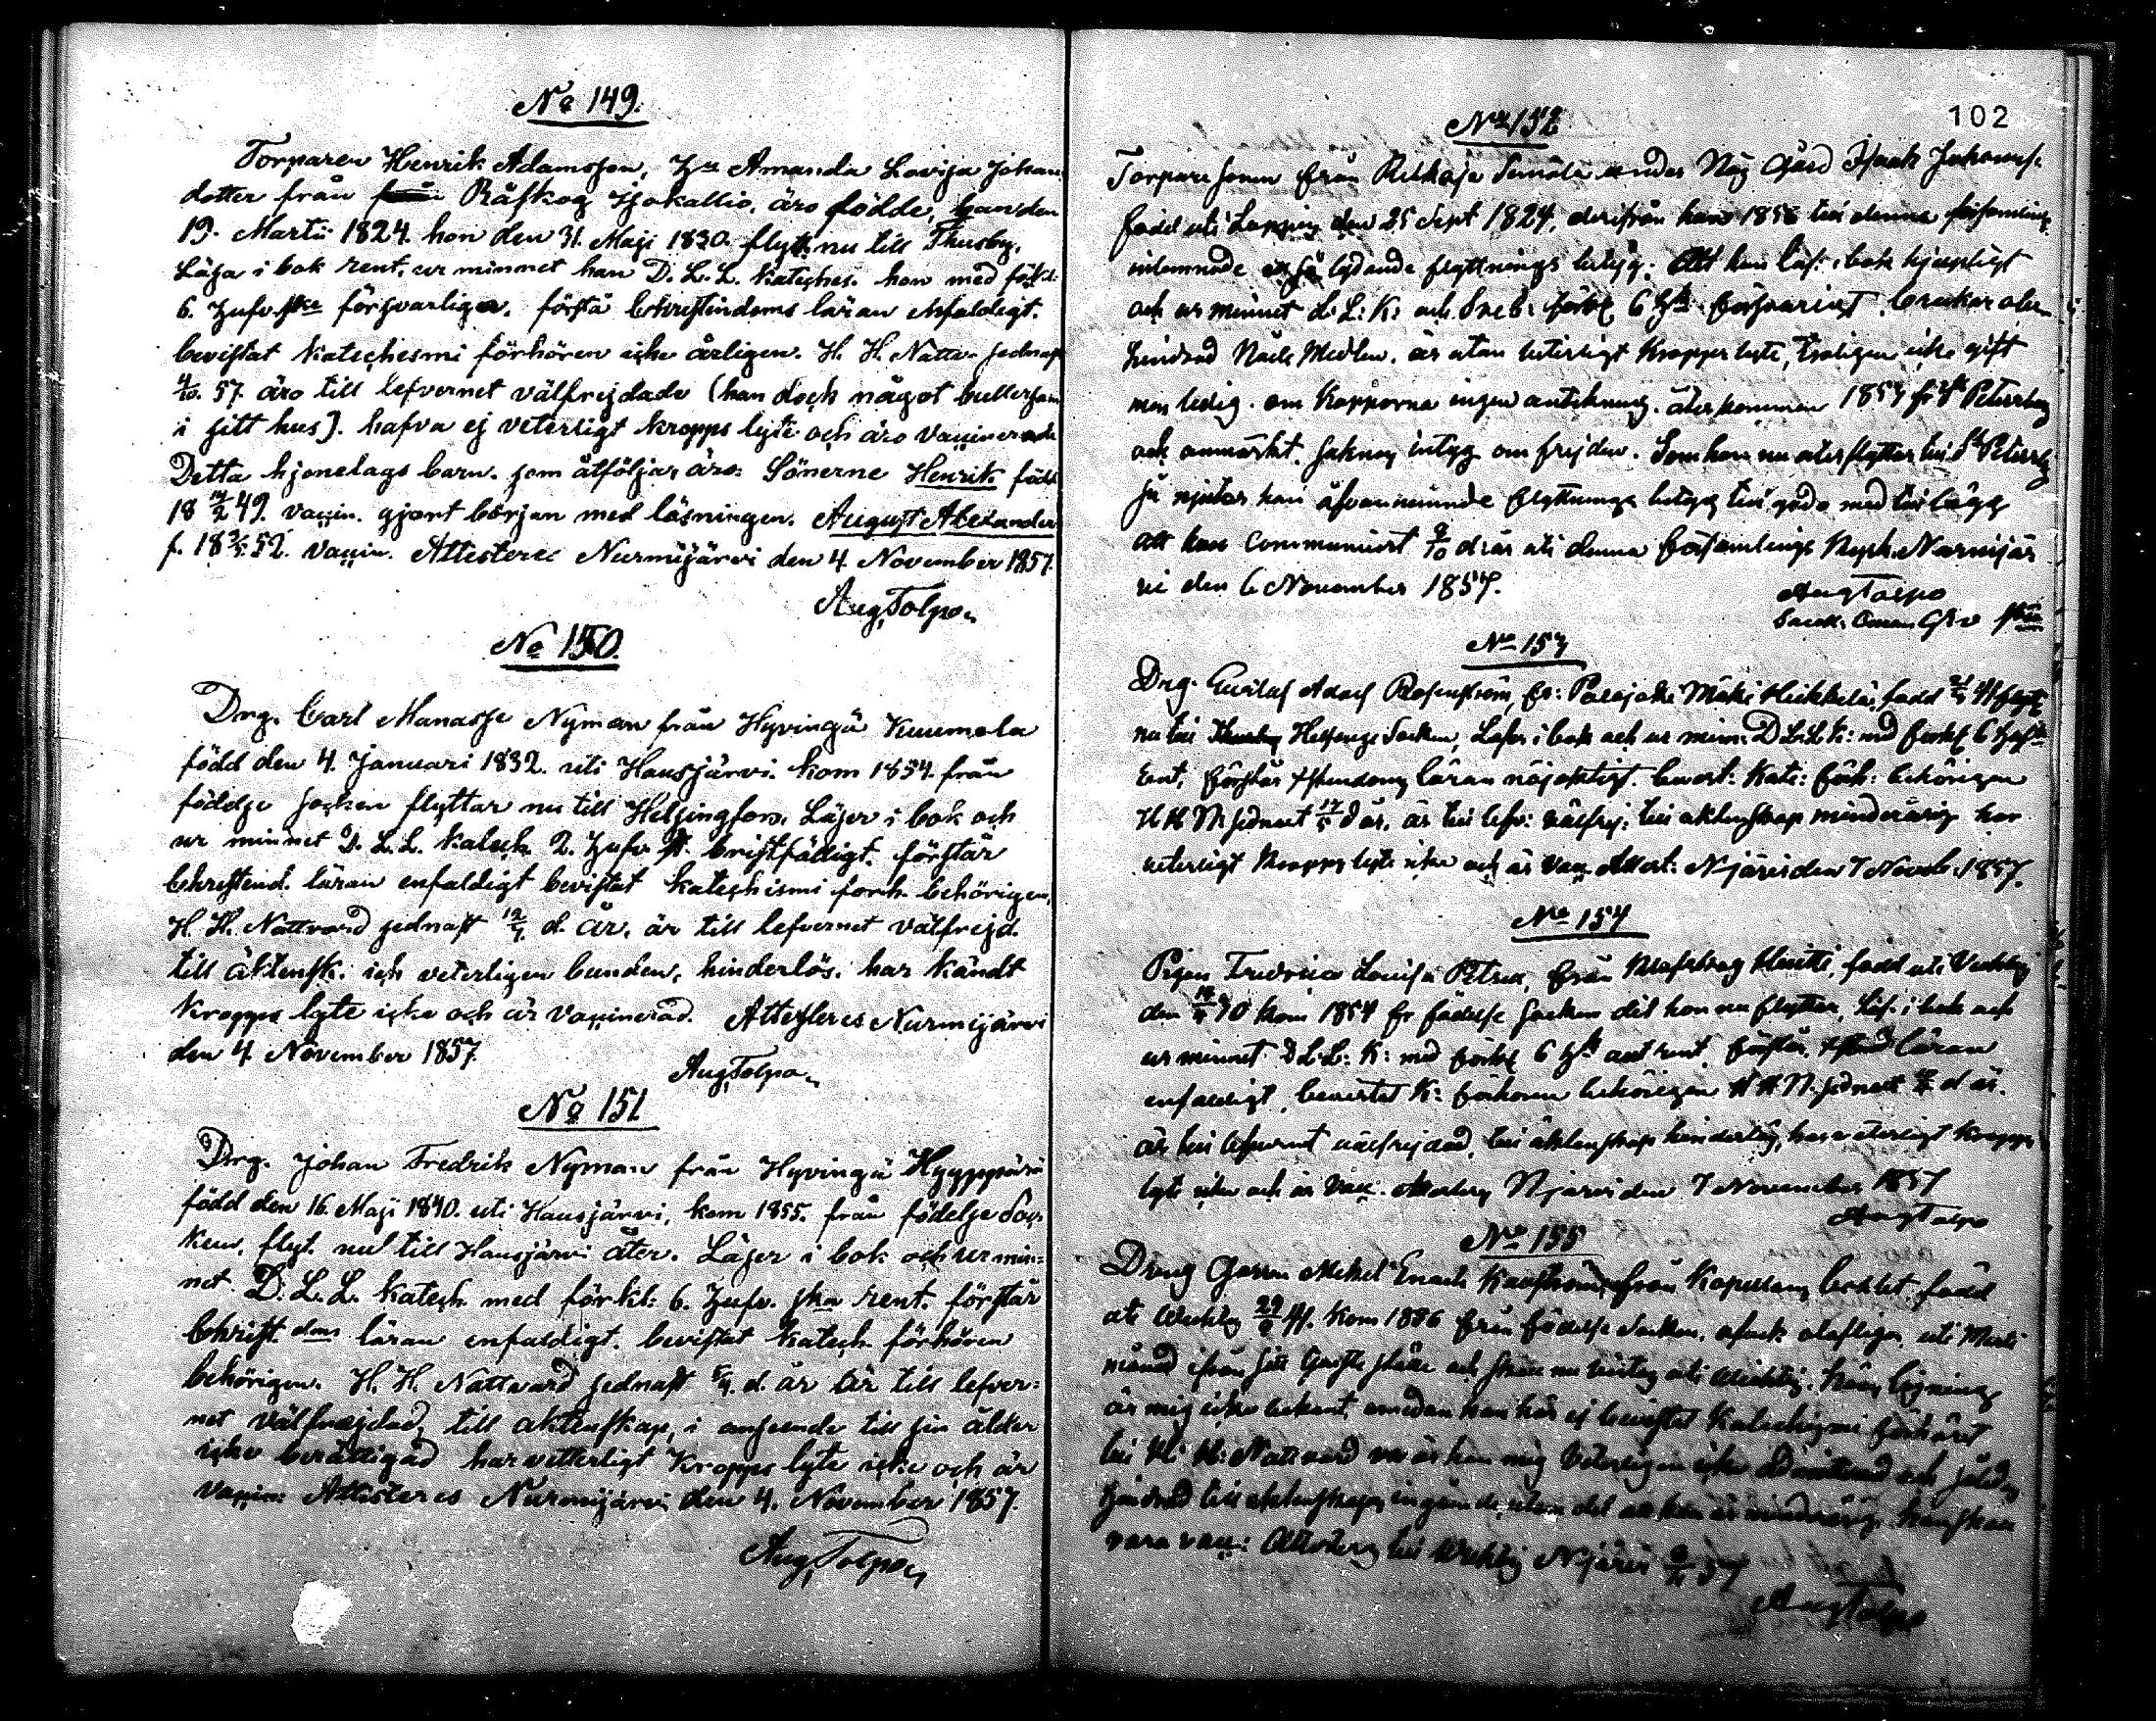 No 149.
Torparen Henrik Adamsson, Hu Amanda Lovisa Johans
dotter från Råskog Isokallio, äro födde, han den
19. Martii 1824. hon den 31. Maji 1830. flytt. nu till Thusby.
Läsa i bok rent, ur minnet han D. L. L. Kateches. hon med förkl.
6. Hufv. ska försvarligen. förstå Christindoms läran enfaldigt.
bevistat Katechesmi förhören icke årligen. H. H. Nattv. sednast
4/10. 57. äro till lefvernet välfrejdade (han dock något bullersam
i sitt hus). hafva ej veterligt kropps lyte och äro vaccinerade
Detta hjonelags barn. som åtfölja, äro: Sönerne Henrik född
18 /2 49. Vaccin. gjort början med läsningen. August Alexander
f. 18 /5 52. Vaccin. Attesteres Nurmijärvi den 4 November 1857.
Aug. Tolpo
No 150.
Drg. Carl Manasse Nyman från Hyvingä Knumola
född den 4. Januari 1832. uti Hausjärvi. kom 1854. från
födelse socken flyttar nu till Helsingfors. Läser i bok och
ur minnet D. L. L. Katech. 2. Hufv. st. bristfälligt. förstår
Christend. läran enfaldigt bevistat Katechismi förh. behörigen,
H. H. Nattvard sednast 12/7. d. år, är till lefvernet välfrejd.
till äktensk. ick veterligen bunden, hinderlös. har kändt
kropps lyte icke och är Vaccinerad. Attesteres Nurmijärvi
den 4. November 1857.
Aug. Tolpo
No 151
Drg. Johan Fredrik Nyman från Hyvingä Hyyppärä
född den 16. Maji 1840. uti Hausjärvi, kom 1855. från födelse Soc-
ken, flyt. nu till Hausjärvi åter. Läser i bok och ur min-
net D. L. L. Katech. med förkl: 6. Hufv. ska rent. förstår
Christ.dms läran enfaldigt. bevistat Katech. förhören
behörigen. H. H. Nattvard sednast /4. d. år är till lefver-
net välfrejdad, till aktenskap, i anseende till sin ålder
icke berättigad har vetterligt kropps lyte icke och är
Vaccin: Attesteres Nurmijärvi den 4. November 1857.
Aug. Tolpo
102
No 152
Torpare sonen från Rethaja under Näs Gård Isaak Johans.
född uti Lopping den 25 Sept 1824, derifrån han 1856 till denna församling
inlemnade så lydande flyttnings betyg: Att han läs. i bok hjelpligt
och ur minnet L: L: K: och förkl 6 Hfst försvarligt, brukar oban
hindrad Nåde Medlen. är utan veterligt Kropps lyte, troligen icke gift
men ledig. om Kopporna ingen anteckning. återkommen 1857 fr St Peterburg
och anmärkt, saknas intyg om frejden. Som han nu återflyttar till St Petersb
så njutar han ofvannämnde flyttnings betyg till godo med tillägg
att han communicert /10 d: år uti denna församlings Kyrk. Nurmijär
vi den 6 November 1857.
Aug Tolpo
No 153
Drg. Gustaf Adolf Rosenström, fr: Palojoki Mäki Heikkilä, född flytt
nu till Helsinge Socken, Läser i bok och ur minn. D L: L K: md förkl 6 Hufst
rent, förstår Xstendoms läran nöjaktigt. bevist: Kate: förh: behörigen
H H N. sednast 12/5 d år, är till lefv: välfrej: till aktenskap minderårig har
veterligt kropps lyte icke och är vacc. Attest: Njärvi den 7 Novemb: 1857.
No 154
Pigan Fredrica Lovisa Petrus, från Klaukby född uti Vichtis
den kom 1854 fr födelse socken dit hon nu flyttar, Läs. i bok och
ur minnet D L: L: K: med förkl 6 Hfst allt rent förstår läran
enfaldigt, bevistat K: förhören behörigen H H N. sednast d år.
är till lefvernet välfrejdad, till äktenskap hinderlös, har veterligt kropps
lyte icke och är Vacc. Attesteras Njärvi den 7 November 1857
Aug Tolpo
No 155
Dreng Gossen Mikel Enach från Kapellans bohlet. född
uti Wichtis 29/9 41. kom 1856 från födelse socken, afvek olofligen, uti Martii
månad ifrån sitt tjenste ställe och skall nu vistas uti Wichtis. hans läsning
är mig icke bekant, emedan han här ej bevistat Katechismi förhöret
till H: H: Nattvard är han mig veterligen icke admitterad och således
hindrad till äktenskaps ingående, utom det att han är minderårig. han skall
vara vacc: Attesteras till Wichtis Njärvi /11 57
Aug Tolpo